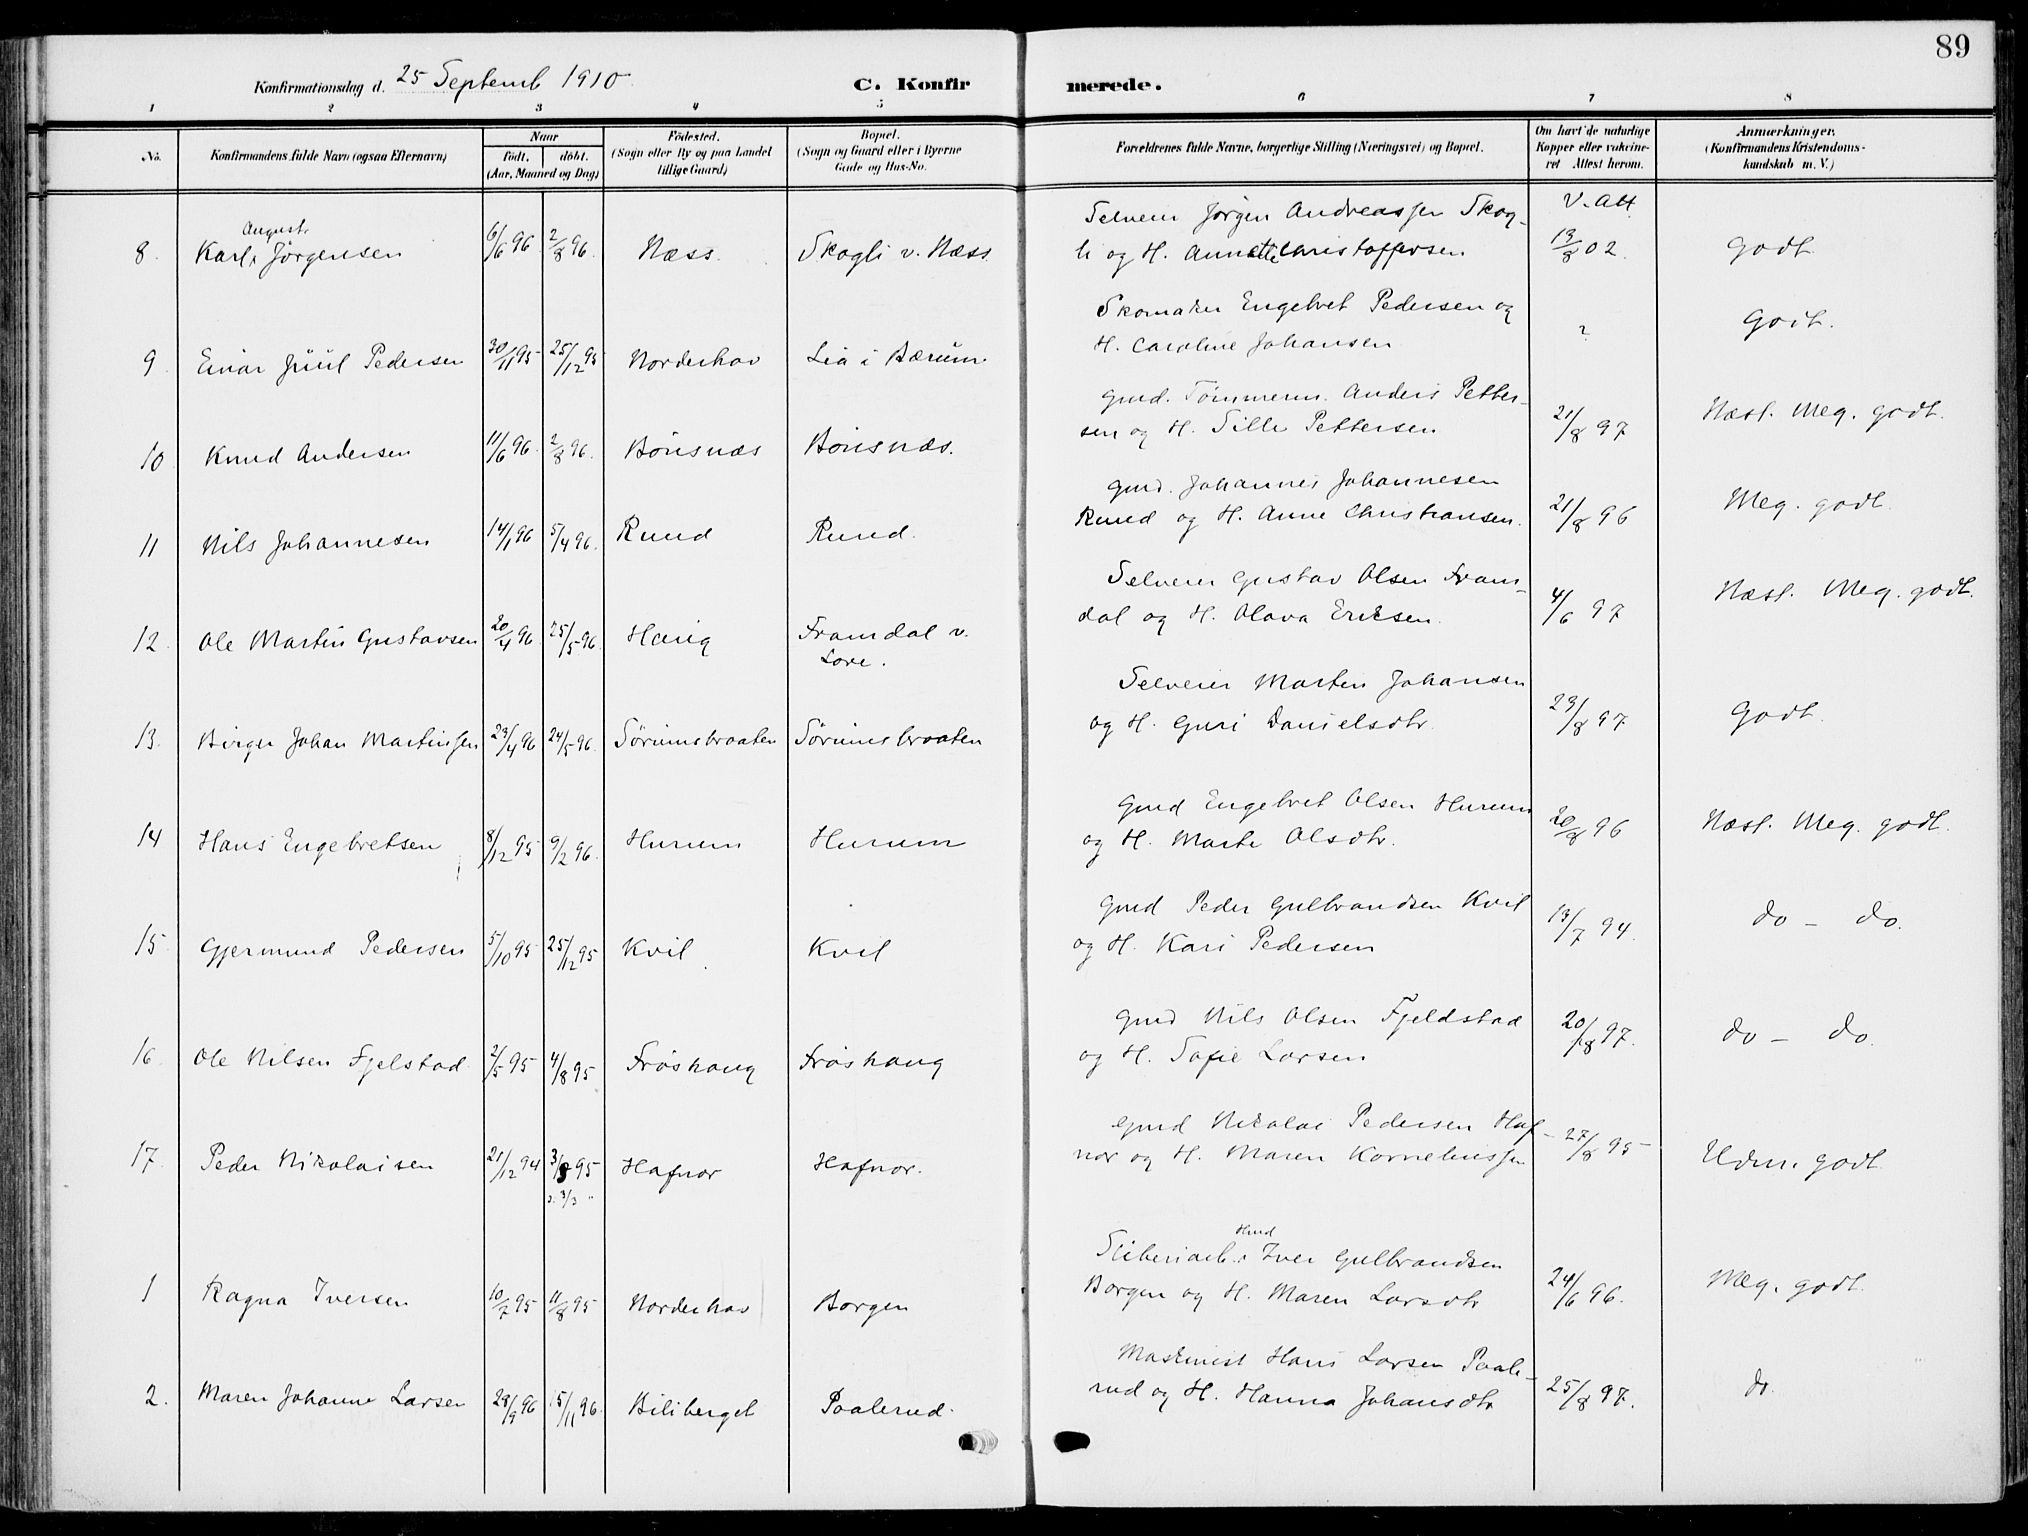 89
Konfirmationsdag d. 25 Septemb 1910. C. Konfirmerede.
1 2 3 4 5 6 7 8
No. Konfirmandens fulde Navn (ogsaa Efternavn) Naar født, døbt. (Aar, Maaned og Dag) Fødested. (Sogn eller By og paa Landet tillige Gaard) Bopæl. (Sogn og Gaard eller i Byerne Gade og Hus-No. Forældrenes fulde Navne, borgerlige Stilling (Næringsvei) og Bopæl. Om havt de naturlige Kopper eller vakcineret Attest herom. Anmærkninger. (Konfirmandens Kristendomskundskab m. V.)
8. Karl August Jørgensen 6/6 96 2/8 96. Næss. Skogli v. Næss Selveier Jørgen Andreassen Skog-
li og H. Annette Christoffersen V. Att. 13/8 02. Godt.
9 Einar Juul Pedersen 30/11 95 25/12 95 Norderhov Lia i Bærum. Skomaker Engebret Pedersen og
H. Caroline Johansen ? Godt.
10 Knud Andersen 11/6 96. 2/8 96. Bönsnæs Bönsnæs. Gmd. Tömmerm. Anders Petter-
sen og H. Sille Pettersen 21/8 97 Næst. Meg. godt.
11 Nils Johannesen 14/1 96 5/4 96. Rund Rund. Gmd. Johannes Johannesen
Rund og H. Anne Christiansen. 21/8 96 Meg. godt.
12. Ole Martin Gustavsen 20/4 96 25/5 96. Haug Framdal v.
Lore. Selveier Gustav Olsen Fram-
dal og H. Olava Eriksen. 4/6 97 Næst. Meg. godt.
13. Birger Johan Martinsen 23/4 96 24/5 96. Sörumsbraaten Sörumsbraaten Selveier Martin Johansen
og H. Guri Danielsdtr. 23/8 97 Godt.
14 Hans Engebretsen 8/12 95 9/2 96. Hurum Hurum Gmd Engebret Olsen Hurum
og H. Marte Olsdtr. 20/8 96 Næst. Meg. godt.
15. Gjermund Pedersen 5/10 95 25/12 95 Kvil Kvil Gmd Peder Gulbrandsen Kvil
og H. Kari Pedersen 13/7 94. do - do.
16. Ole Nilsen Fjelstad 2/5 95 4/8 95 Fröshaug Fröshaug Gmd Nils Olsen Fjeldstad
og H. Sofie Larsen 20/8 97. do - do.
17. Peder Nikolaisen 21/12 94 3/3 95
3/3 " Hafnor Hafnor. Gmd Nikolai Pedersen Haf-
nor og H. Maren Korneliussen 27/8 95 Udm. godt
1 Ragna Iversen 10/7 95 11/8 95 Norderhov Borgen Sliberiarb. Hmd Iver Gulbrandsen
Borgen og H. Maren Larsdtr 24/6 96. Meg. godt.
2. Maren Johanne Larsen 28/9 96 15/11 96. Biliberget Paalerud. Maskinist Hans Larsen Paale-
rud og H. Hanna Johansdtr 25/8 97. do.